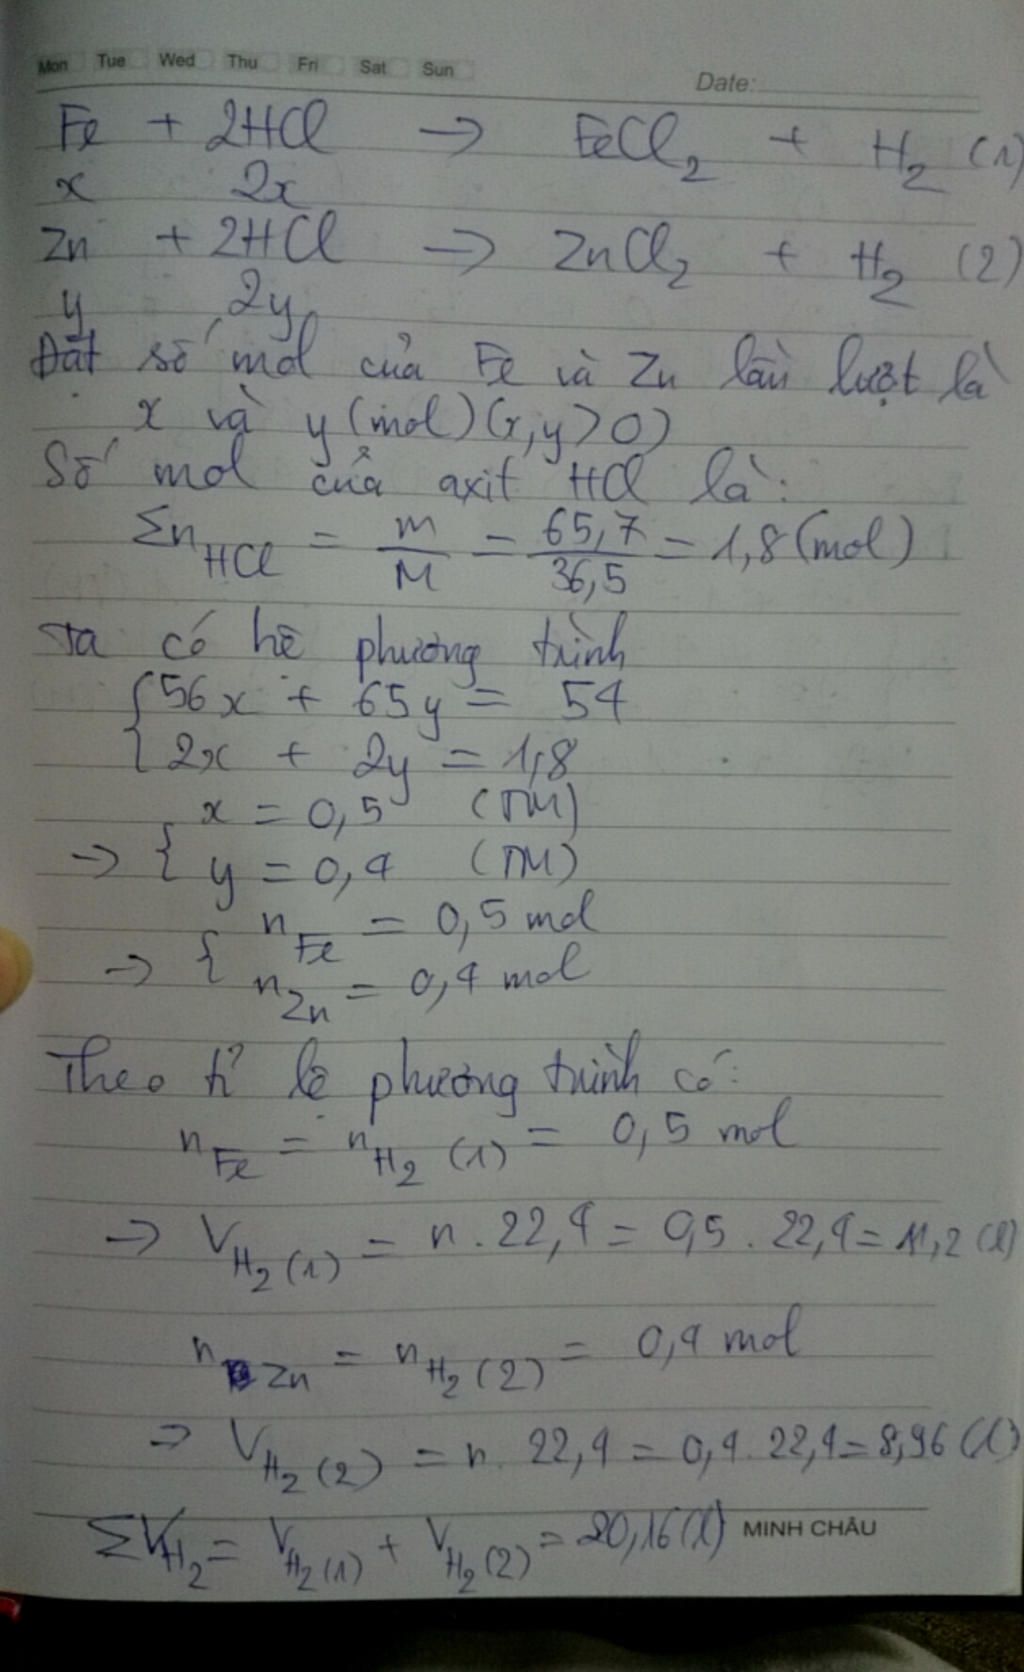 Mon Tue Wed Thu Fri Sat Sun
Date:
Fe + 2HCl → FeCl₂ + H₂ (1)
x 2x
Zn + 2HCl → ZnCl₂ + H₂ (2)
y 2y
Đặt số mol của Fe và Zn lần lượt là
x và y (mol) (x,y>0)
Số mol của axit HCl là:
Σn_HCl = m/M = 65,7/36,5 = 1,8 (mol)
Ta có hệ phương trình
{56x + 65y = 54
{2x + 2y = 1,8
→ { x = 0,5 (TM)
y = 0,4 (TM)
→ { n_Fe = 0,5 mol
n_Zn = 0,4 mol
Theo tỉ lệ phương trình có:
n_Fe = n_H₂ (1) = 0,5 mol
→ V_H₂ (1) = n . 22,4 = 0,5 . 22,4 = 11,2 (l)
n_Zn = n_H₂ (2) = 0,4 mol
⇒ V_H₂ (2) = n . 22,4 = 0,4 . 22,4 = 8,96 (l)
ΣV_H₂ = V_H₂ (1) + V_H₂ (2) = 20,16 (l)
MINH CHÂU